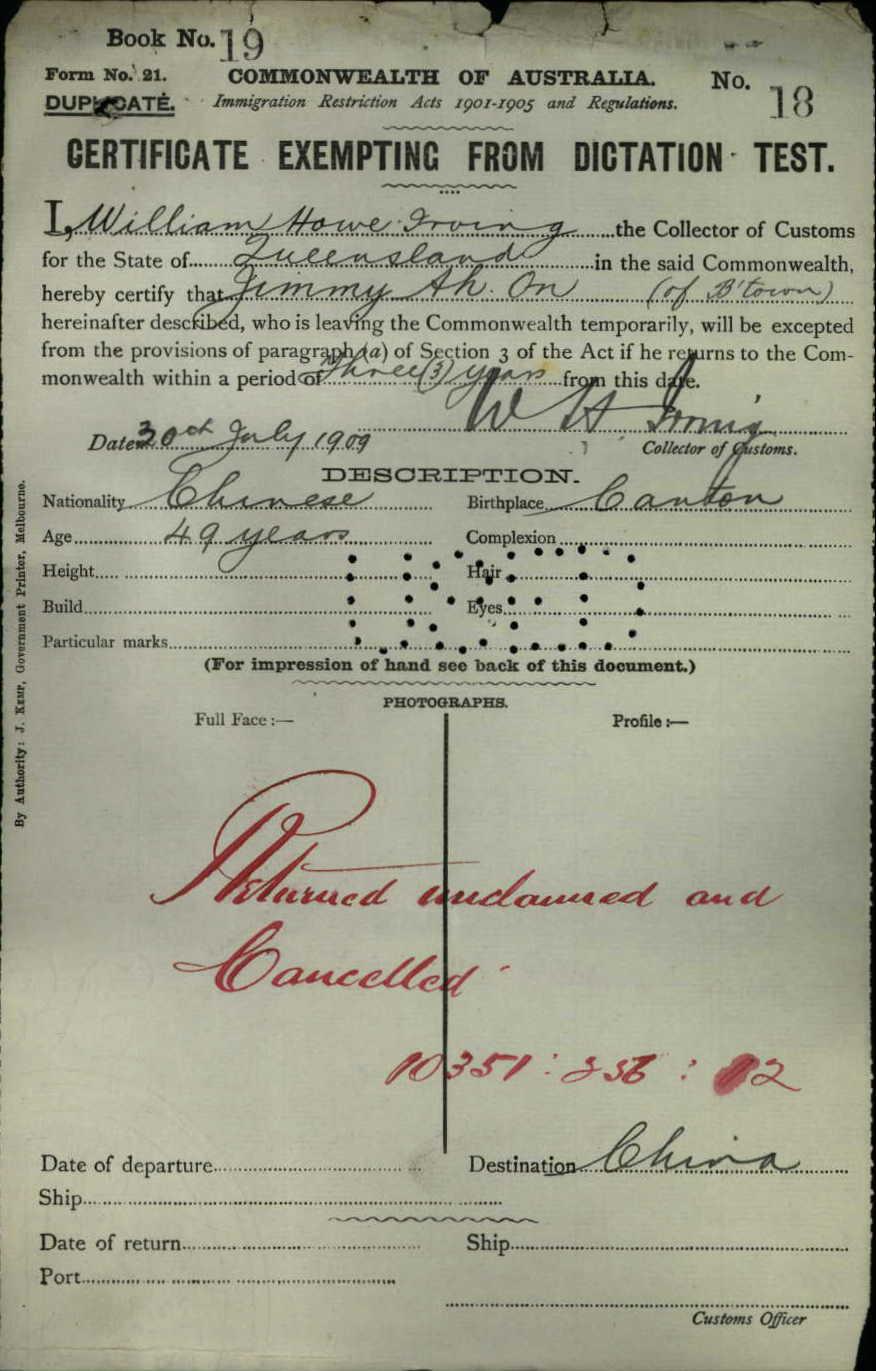 Book No. 19
Form No. 21. COMMONWEALTH OF AUSTRALIA. No. 18
DUPLICATE. Immigration Restriction Acts 1901-1905 and Regulations.
CERTIFICATE EXEMPTING FROM DICTATION TEST.
I, William Howe Irving the Collector of Customs
for the State of Queensland in the said Commonwealth,
hereby certify that Jimmy Ah On (of B'town)
hereinafter described, who is leaving the Commonwealth temporarily, will be excepted
from the provisions of paragraph (a) of Section 3 of the Act if he returns to the Com-
monwealth within a period of Three (3) years from this date.
W H Irving
Date 30th July 1909 Collector of Customs.
DESCRIPTION.
Nationality Chinese Birthplace Canton
Age 49 years Complexion
Height Hair
Build Eyes
Particular marks
(For impression of hand see back of this document.)
PHOTOGRAPHS.
Full Face :— Profile :—
Returned unclaimed and
Cancelled
10351 : 12
Date of departure Destination China
Ship
Date of return Ship
Port
Customs Officer
By Authority: J. Kemp, Government Printer, Melbourne.